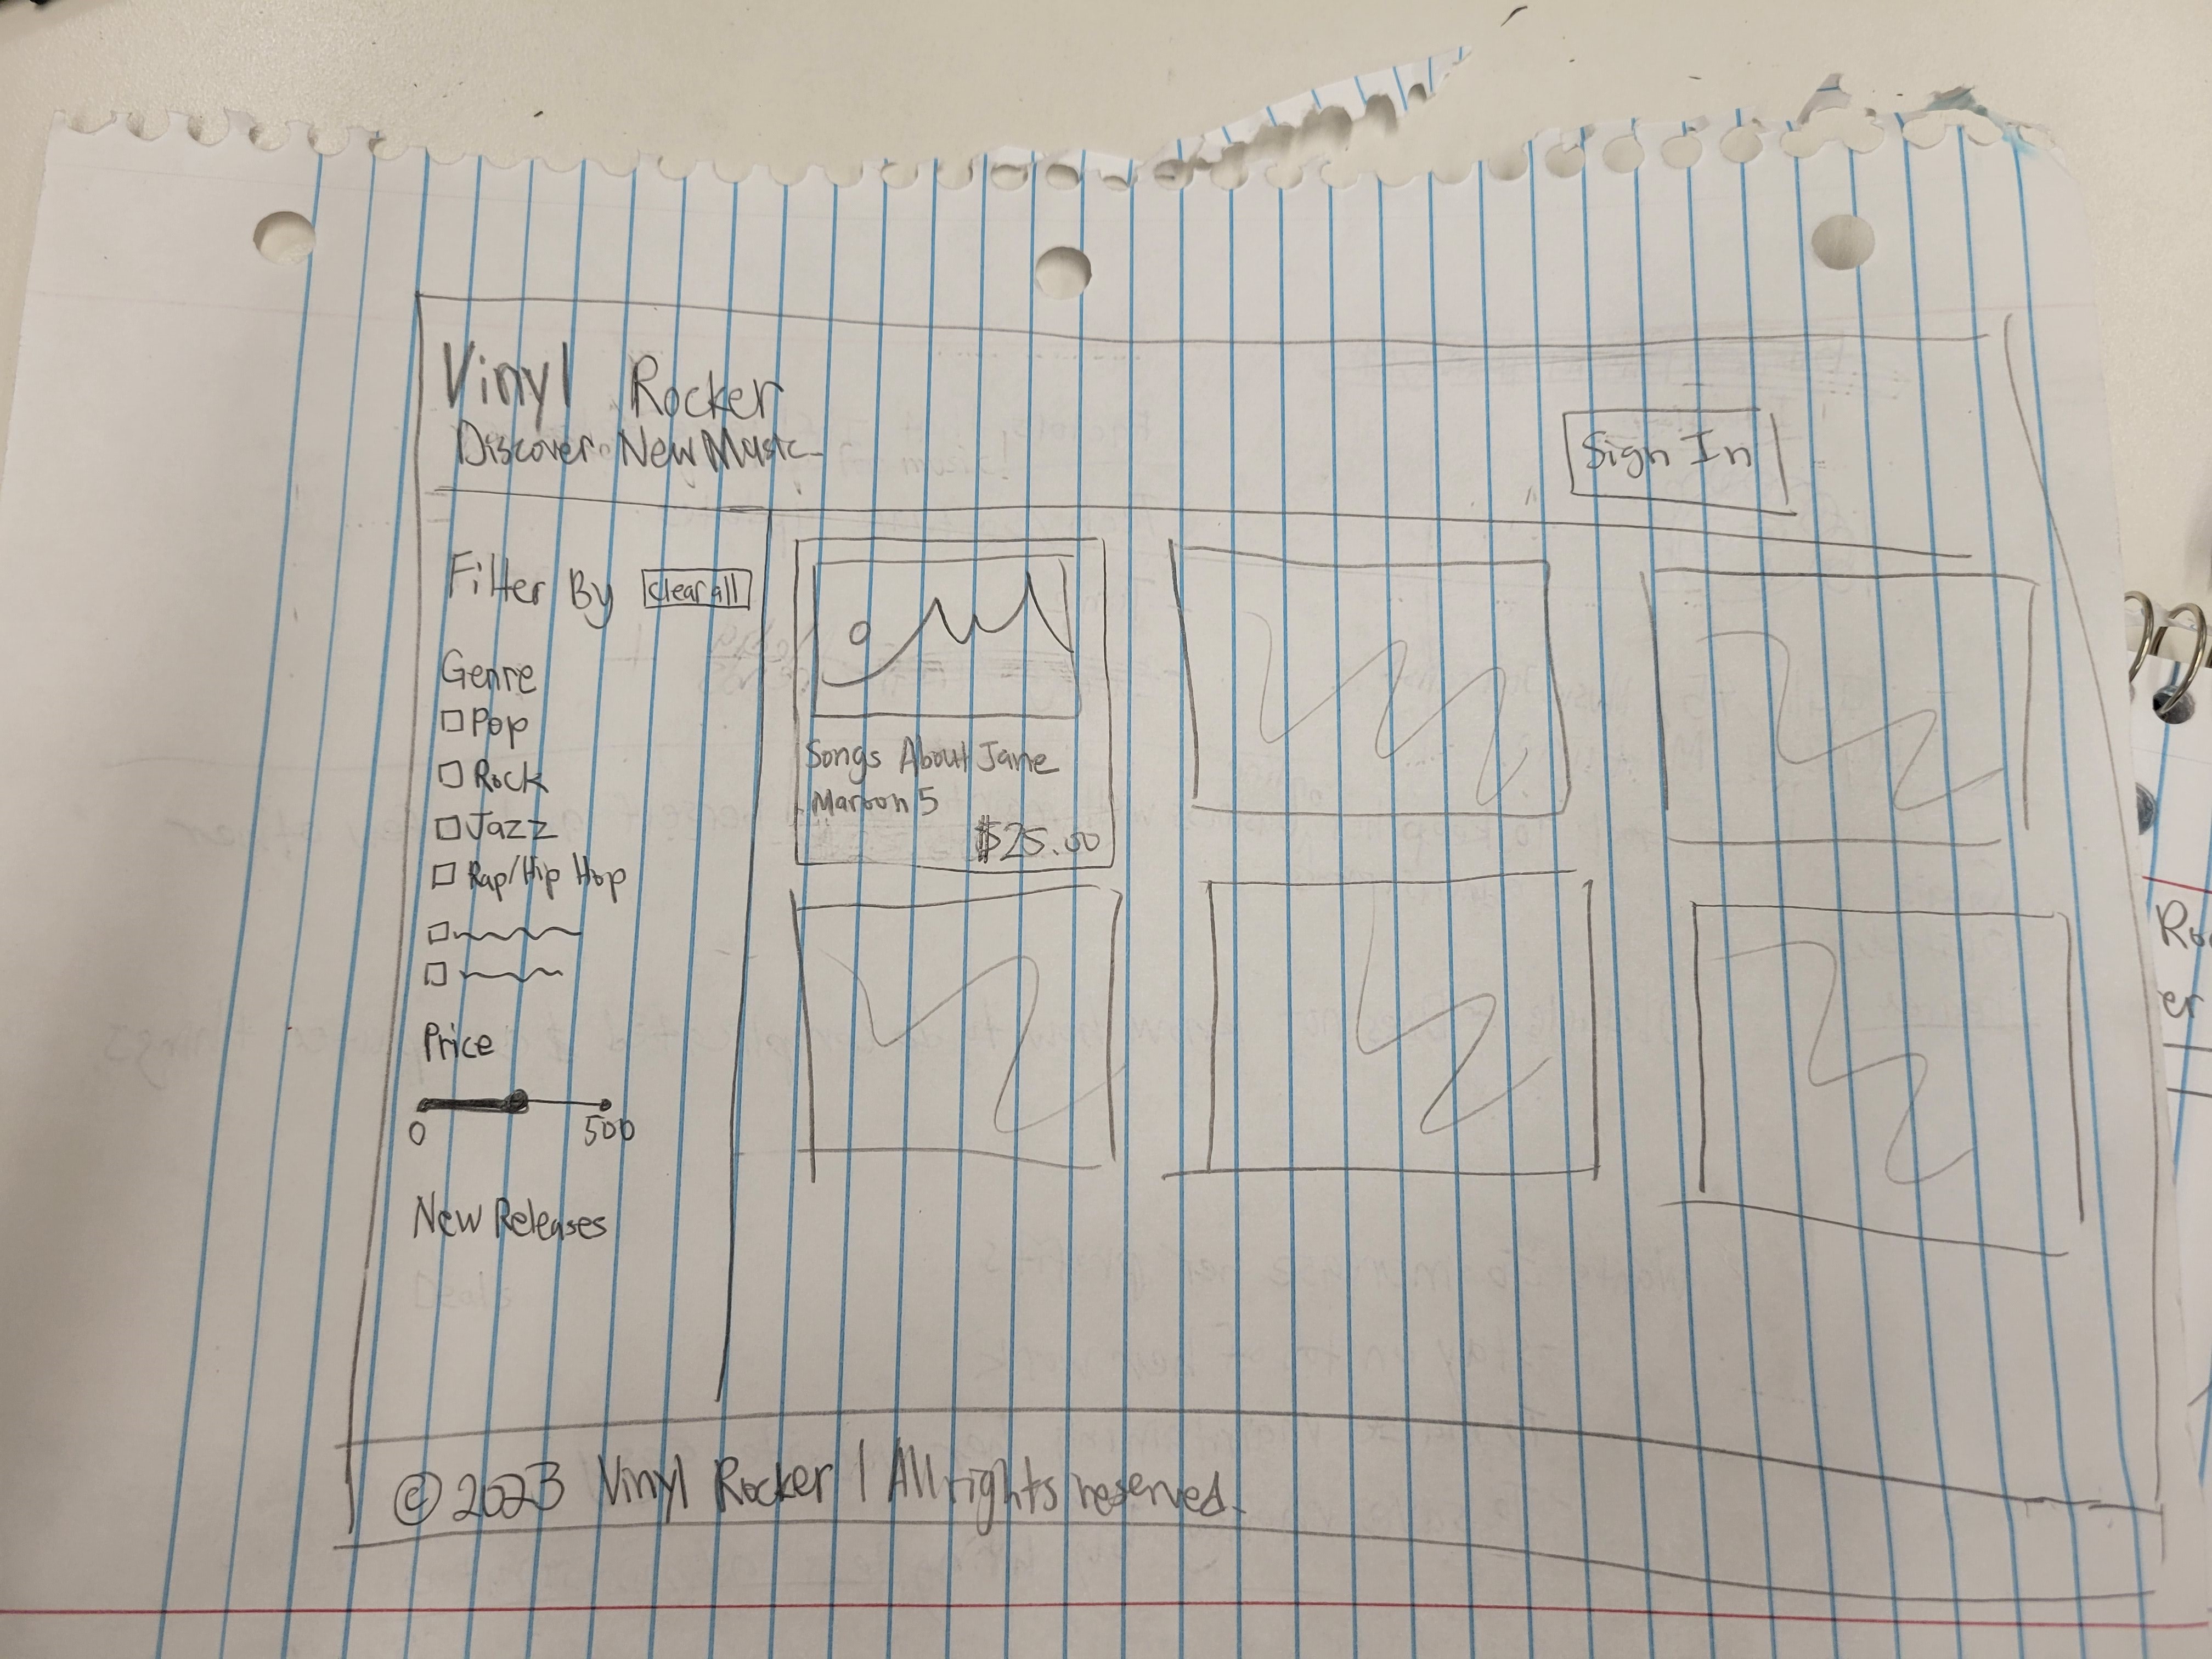 Vinyl Rocker
Discover New Music
Sign In
Filter By
clear all
Genre
Pop
Rock
Jazz
Rap/Hip Hop
Price
0
500
New Releases
Songs About Jane
Maroon 5
$25.00
© 2023 Vinyl Rocker | All rights reserved.